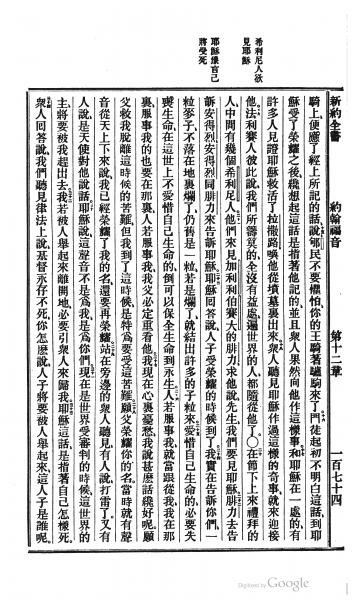 新約全書　約翰福音　第十二章　一百七十四
騎上便應了經上所記的話說郇民不要懼怕你的王騎著驢駒來了門徒起初不明白這話到耶
穌受了榮耀之後纔想起這話是指著他記的並且衆人果然向他作這樣事和耶穌在一處的有
許多人見證耶穌救活了拉撒路喚他從墳墓裏出來衆人聽見耶穌作過這樣的奇事就來迎接
他法利賽人彼此說我們所籌算的全沒有益處遍世界的人都隨從他了〇在節下上來禮拜的
人中間有幾個希利尼人他們來見加利利伯賽大的腓力求他說先生我們要見耶穌腓力去告
訴安得烈安得烈同腓力來告訴耶穌耶穌回答說人子受榮耀的時候到了我實在告訴你們一
粒麥子不落在地裏爛了仍舊是一粒若是爛了就結出許多的子粒來愛惜自己生命的必要失
喪生命在這世上不愛惜自己生命的倒可以保全生命到永生人若服事我就當跟從我我在那
裏服事我的也要在那裏人若服事我我父必定重看他我現在心裏憂愁我說甚麼話纔好呢願
父救我脫離這時候的苦難但我到了這時候是特爲要受這苦難願父榮耀你的名當時就有聲
音從天上下來說我已經榮耀了我的名還要再榮耀站在旁邊的衆人聽見有人說打雷了又有
人說是天使對他說話耶穌說這聲音不是爲我是爲你們現在是世界受審判的時候這世界的
主將要被我趕出去我若被人舉起來離開地必要引衆人來歸我耶穌這話是指著自己怎樣死
衆人回答說我們聽見律法上說基督永存不死你怎麼說人子將要被人舉起來這人子是誰呢
希利尼人欲
見耶穌
耶穌
自己
將受死
Digitized by Google